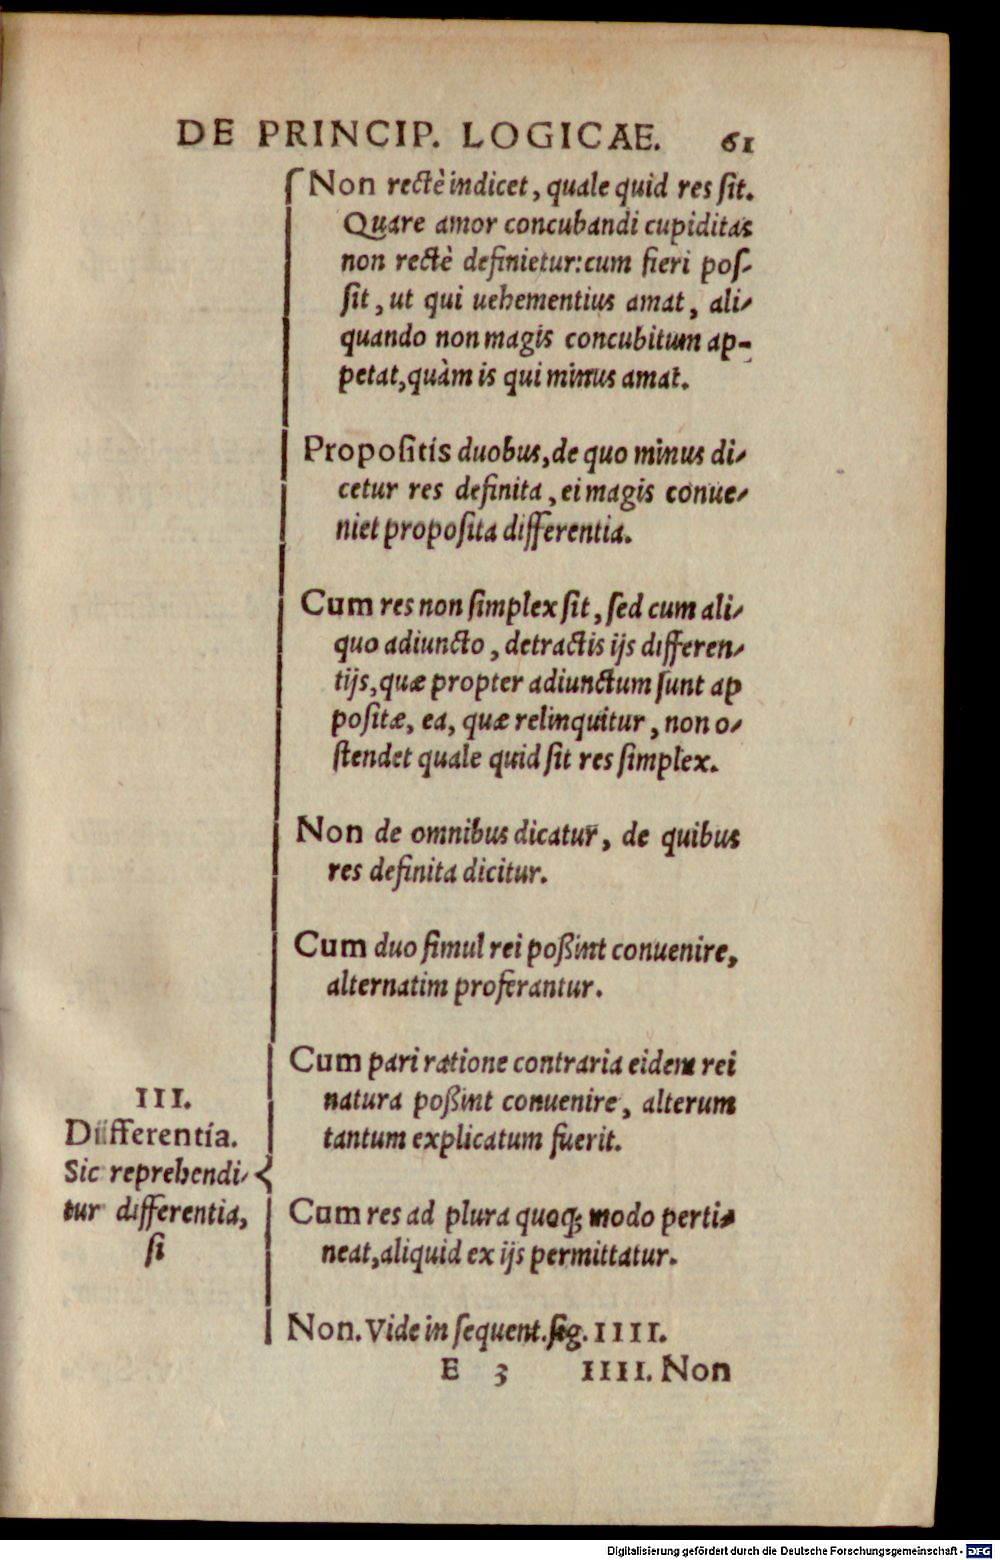 DE PRINCIP. LOGICAE. 61
Non rectè indicet, quale quid res ſit.
Quare amor concubandi cupiditas
non rectè definietur: cum fieri poſ-
ſit, ut qui uehementius amat, ali-
quando non magis concubitum ap-
petat, quàm is qui minus amat.
Propoſitis duobus, de quo minus di-
cetur res definita, ei magis conue-
niet propoſita differentia.
Cum res non ſimplex ſit, ſed cum ali-
quo adiuncto, detractis ijs differen-
tijs, quæ propter adiunctum ſunt ap
poſitæ, ea, quæ relinquitur, non o-
ſtendet quale quid ſit res ſimplex.
Non de omnibus dicatur, de quibus
res definita dicitur.
Cum duo ſimul rei poßint conuenire,
alternatim proferantur.
Cum pari ratione contraria eidem rei
natura poßint conuenire, alterum
tantum explicatum fuerit.
III.
Differentia.
Sic reprehendi-
tur differentia,
ſi
Cum res ad plura quoq; modo perti-
neat, aliquid ex ijs permittatur.
Non. Vide in ſequent. fig. IIII.
E 3 IIII. Non
Digitalisierung gefördert durch die Deutsche Forschungsgemeinschaft - DFG